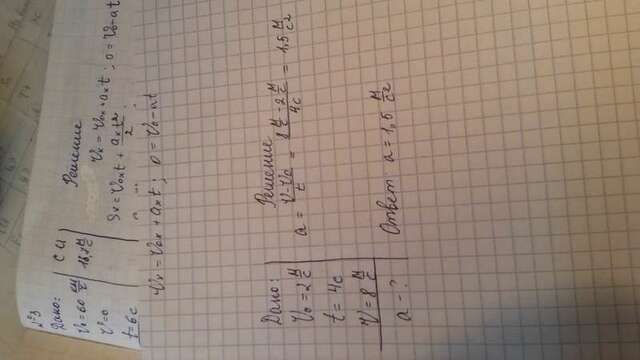 №3
Дано:
V₀ = 60 км/ч
V = 0
t = 6с
СИ
Решение
Vₓ = V₀ₓ + aₓt ; 0 = V₀ - at
Sₓ = V₀ₓt + aₓt²/2
Vₓ = V₀ₓ + aₓt ; 0 = V₀ - at
Дано:
V₀ = 2 м/с
t = 4с
V = 8 м/с
a - ?
Решение
a = V - V₀/t = 8 м/с - 2 м/с/4с = 1,5 м/с²
Ответ: a = 1,5 м/с²